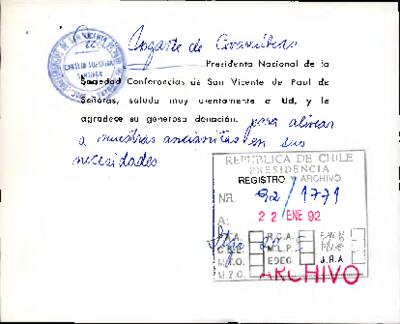 Ugarte de Covarrubias
Presidenta Nacional de la
Sociedad Conferencias de San Vicente de Paul de
Señoras, saluda muy atentamente a Ud, y le
agradece su generosa donación. para aliviar
a nuestras ancianitas en sus
necesidades
REPUBLICA DE CHILE
PRESIDENCIA
REGISTRO Y ARCHIVO
NR. 92/1771
A: 22 ENE 92
P.A.A. R.C.A.
C.B.E. M.L.P.
M.T.O. EDEC J.R.A
M.Z.C.
ARCHIVO